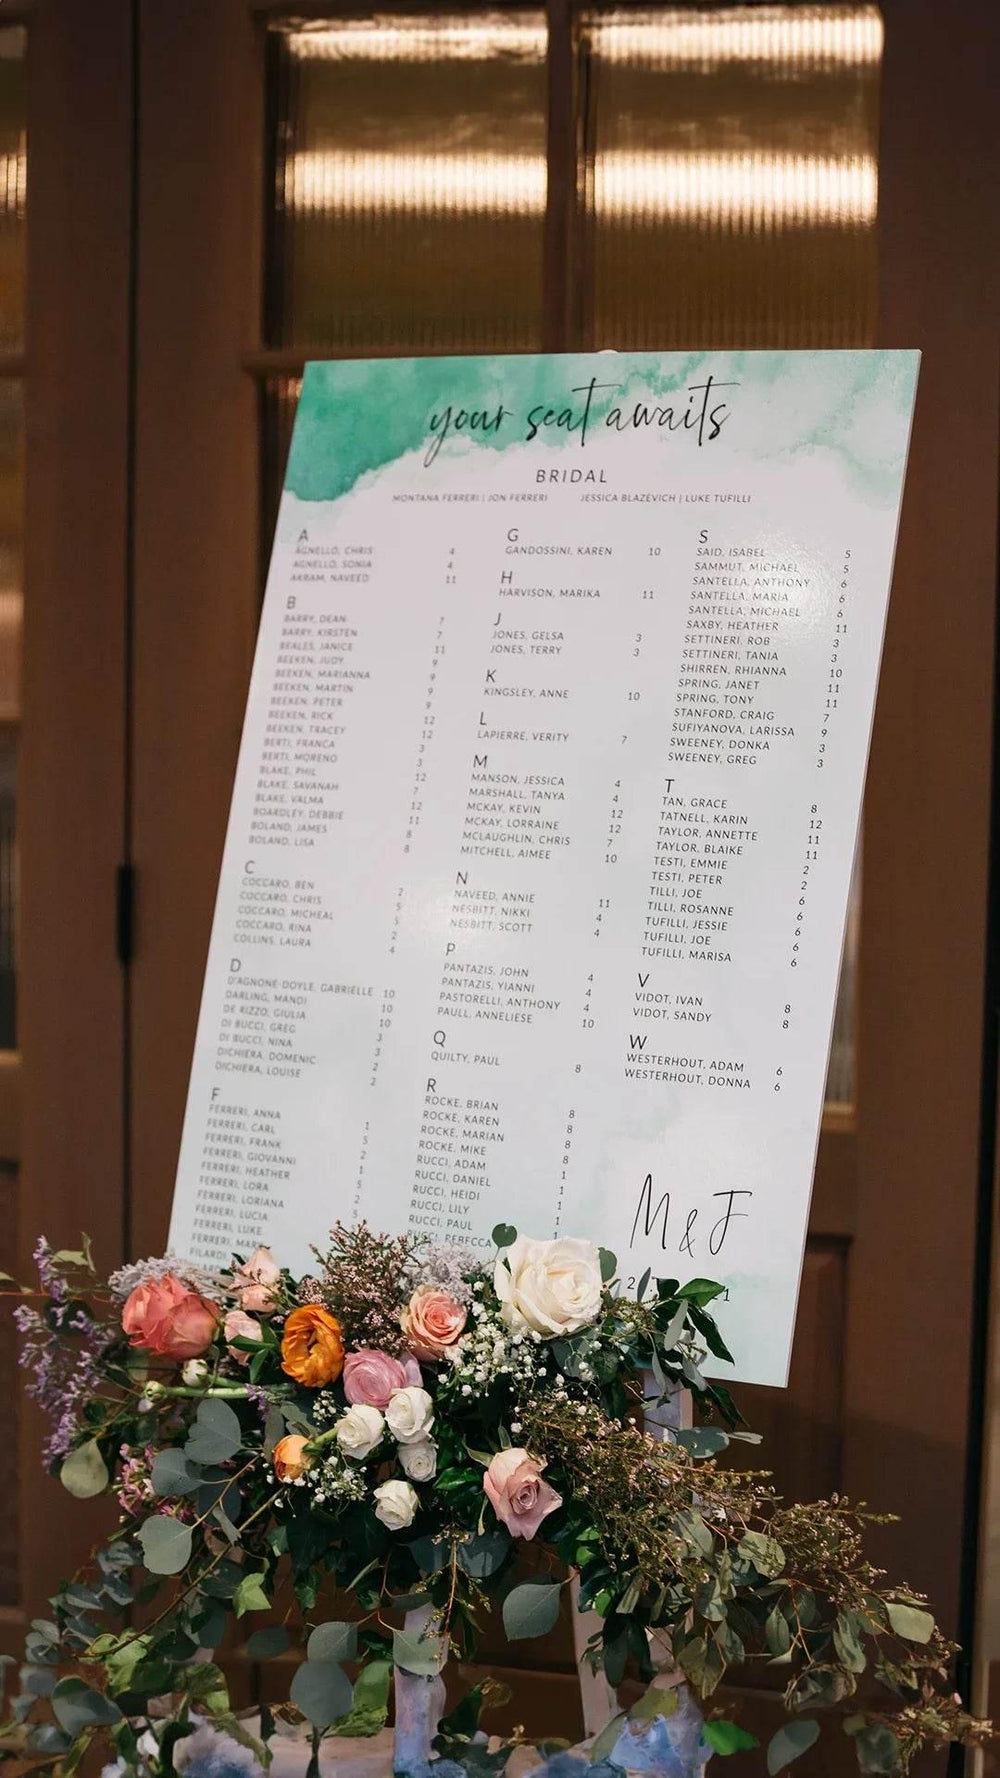 your seat awaits
BRIDAL
MONTANA FERRERI | JON FERRERI JESSICA BLAZEVICH | LUKE TUFILLI
A
AGNELLO, CHRIS 4
AGNELLO, SONIA 4
AKRAM, NAVEED 11
B
BARRY, DEAN 7
BARRY, KIRSTEN 7
BEALES, JANICE 11
BEEKEN, JUDY 9
BEEKEN, MARIANNA 9
BEEKEN, MARTIN 9
BEEKEN, PETER 9
BEEKEN, RICK 12
BEEKEN, TRACEY 12
BERTI, FRANCA 3
BERTI, MORENO 3
BLAKE, PHIL 12
BLAKE, SAVANAH 7
BLAKE, VALMA 12
BOARDLEY, DEBBIE 11
BOLAND, JAMES 8
BOLAND, LISA 8
C
COCCARO, BEN 2
COCCARO, CHRIS 5
COCCARO, MICHEAL 5
COCCARO, RINA 2
COLLINS, LAURA 4
D
D'AGNONE-DOYLE, GABRIELLE 10
DARLING, MANDI 10
DE RIZZO, GIULIA 10
DI BUCCI, GREG 3
DI BUCCI, NINA 3
DICHIERA, DOMENIC 2
DICHIERA, LOUISE 2
F
FERRERI, ANNA 1
FERRERI, CARL 5
FERRERI, FRANK 2
FERRERI, GIOVANNI 1
FERRERI, HEATHER 5
FERRERI, LORA 2
FERRERI, LORIANA 5
FERRERI, LUCIA
FERRERI, LUKE
FERRERI, MARY
G
GANDOSSINI, KAREN 10
H
HARVISON, MARIKA 11
J
JONES, GELSA 3
JONES, TERRY 3
K
KINGSLEY, ANNE 10
L
LAPIERRE, VERITY 7
M
MANSON, JESSICA 4
MARSHALL, TANYA 4
MCKAY, KEVIN 12
MCKAY, LORRAINE 12
MCLAUGHLIN, CHRIS 7
MITCHELL, AIMEE 10
N
NAVEED, ANNIE 11
NESBITT, NIKKI 4
NESBITT, SCOTT 4
P
PANTAZIS, JOHN 4
PANTAZIS, YIANNI 4
PASTORELLI, ANTHONY 4
PAULL, ANNELIESE 10
Q
QUILTY, PAUL 8
R
ROCKE, BRIAN 8
ROCKE, KAREN 8
ROCKE, MARIAN 8
ROCKE, MIKE 8
RUCCI, ADAM 1
RUCCI, DANIEL 1
RUCCI, HEIDI 1
RUCCI, LILY 1
RUCCI, PAUL 1
RUCCI, REBECCA
S
SAID, ISABEL 5
SAMMUT, MICHAEL 5
SANTELLA, ANTHONY 6
SANTELLA, MARIA 6
SANTELLA, MICHAEL 6
SAXBY, HEATHER 11
SETTINERI, ROB 3
SETTINERI, TANIA 3
SHIRREN, RHIANNA 10
SPRING, JANET 11
SPRING, TONY 11
STANFORD, CRAIG 7
SUFIYANOVA, LARISSA 9
SWEENEY, DONKA 3
SWEENEY, GREG 3
T
TAN, GRACE 8
TATNELL, KARIN 12
TAYLOR, ANNETTE 11
TAYLOR, BLAIKE 11
TESTI, EMMIE 2
TESTI, PETER 2
TILLI, JOE 6
TILLI, ROSANNE 6
TUFILLI, JESSIE 6
TUFILLI, JOE 6
TUFILLI, MARISA 6
V
VIDOT, IVAN 8
VIDOT, SANDY 8
W
WESTERHOUT, ADAM 6
WESTERHOUT, DONNA 6
M & J